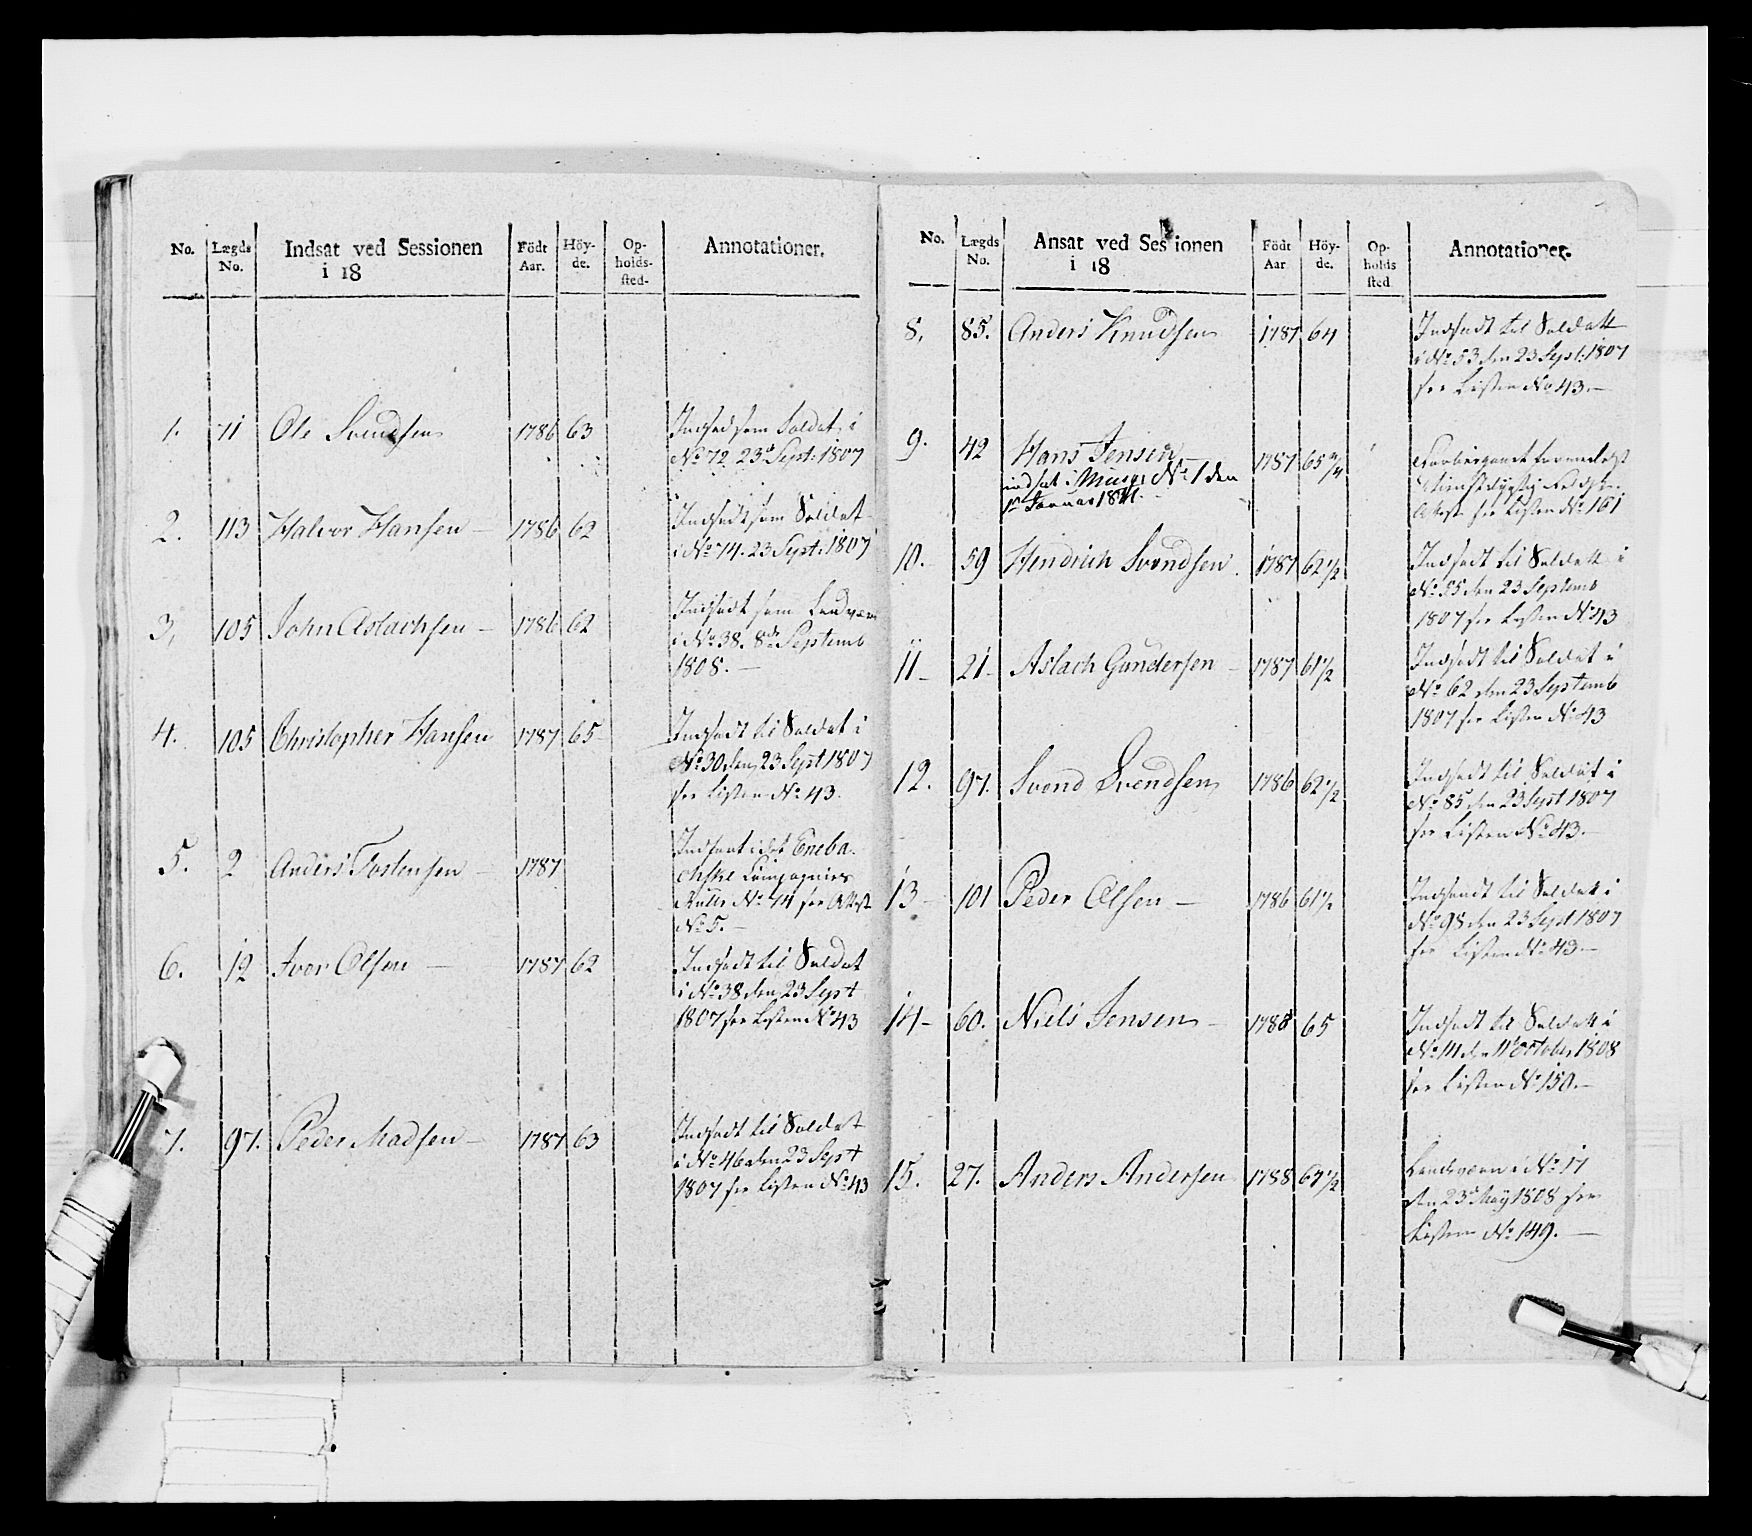 No. Lægds No. Indsat ved Sessionen i 18 Födt Aar. Höyde. Opholdssted. Annotationer.
1. 11 Ole Svendsen 1786 63 Indsad som Soldat i
No 72 23d Sept: 1807
2. 113 Halvor Hansen – 1786 62 Indsadt som Soldat
i No 74. 23 Sept: 1807
3, 105 John Aslachsen – 1786 62 Indsadt som Landværn
i No 38. 8de Septemb
1808. –
4. 105 Christopher Hansen 1787 65 Indsadt til Soldat i
No 30 den 23 Sept 1807
see Listen No 43.
5. 2 Anders Tostensen – 1787 Indført i det Eneba
chske Compagnies
Rulle No see Attest
No 5. –
6. 12 Iver Olsen – 1787 62 Indsadt til Soldat
i No 38 den 23 Sept
1807 see Listen No 43
7. 97. Peder Madsen – 1787 63 Indsadt til Soldat
i No 46 den 23 Sept
1807 see Listen No 43
No. Lægds No. Ansat ved Sessionen i 18 Födt Aar Höyde. Opholds sted Annotationer.
8. 85. Anders Knudsen 1787 64 Indsadt til Soldatt
i No 53 den 23 Sept: 1807
see Listen No 43. –
9. 42 Hans Jensen 1787 65 3/4
indsat i No 1 den
1e Januar 1811.
Attest see Listen No 161
10. 59 Hendrich Svendsen 1787 62 1/2 Indsadt til Soldatt i
No 55 den 23 Septemb
1807 see Listen No 43
11 – 21 – Aslach Gundersen – 1787 61 1/2 Indsadt til Soldat i
No 62 den 23 Septemb
1807 see Listen No 43
12. 97. Svend Svendsen 1786 62 1/2 Indsadt til Soldat i
No 85 den 23 Sept 1807
see Listen No 43. –
13 – 101 Peder Olsen – 1786 61 1/2 Indsadt til Soldat i
No 98 den 23 Sept 1807
see Listen No 43. –
14 – 60. Niels Jensen – 1788 65 Indsadt til Soldatt i
No den 11t October 1808
see Listen No 150. –
15. 27. Anders Andersen 1788 Landeværn i No 51
den 23d May 1808 see
Listen No 149. –